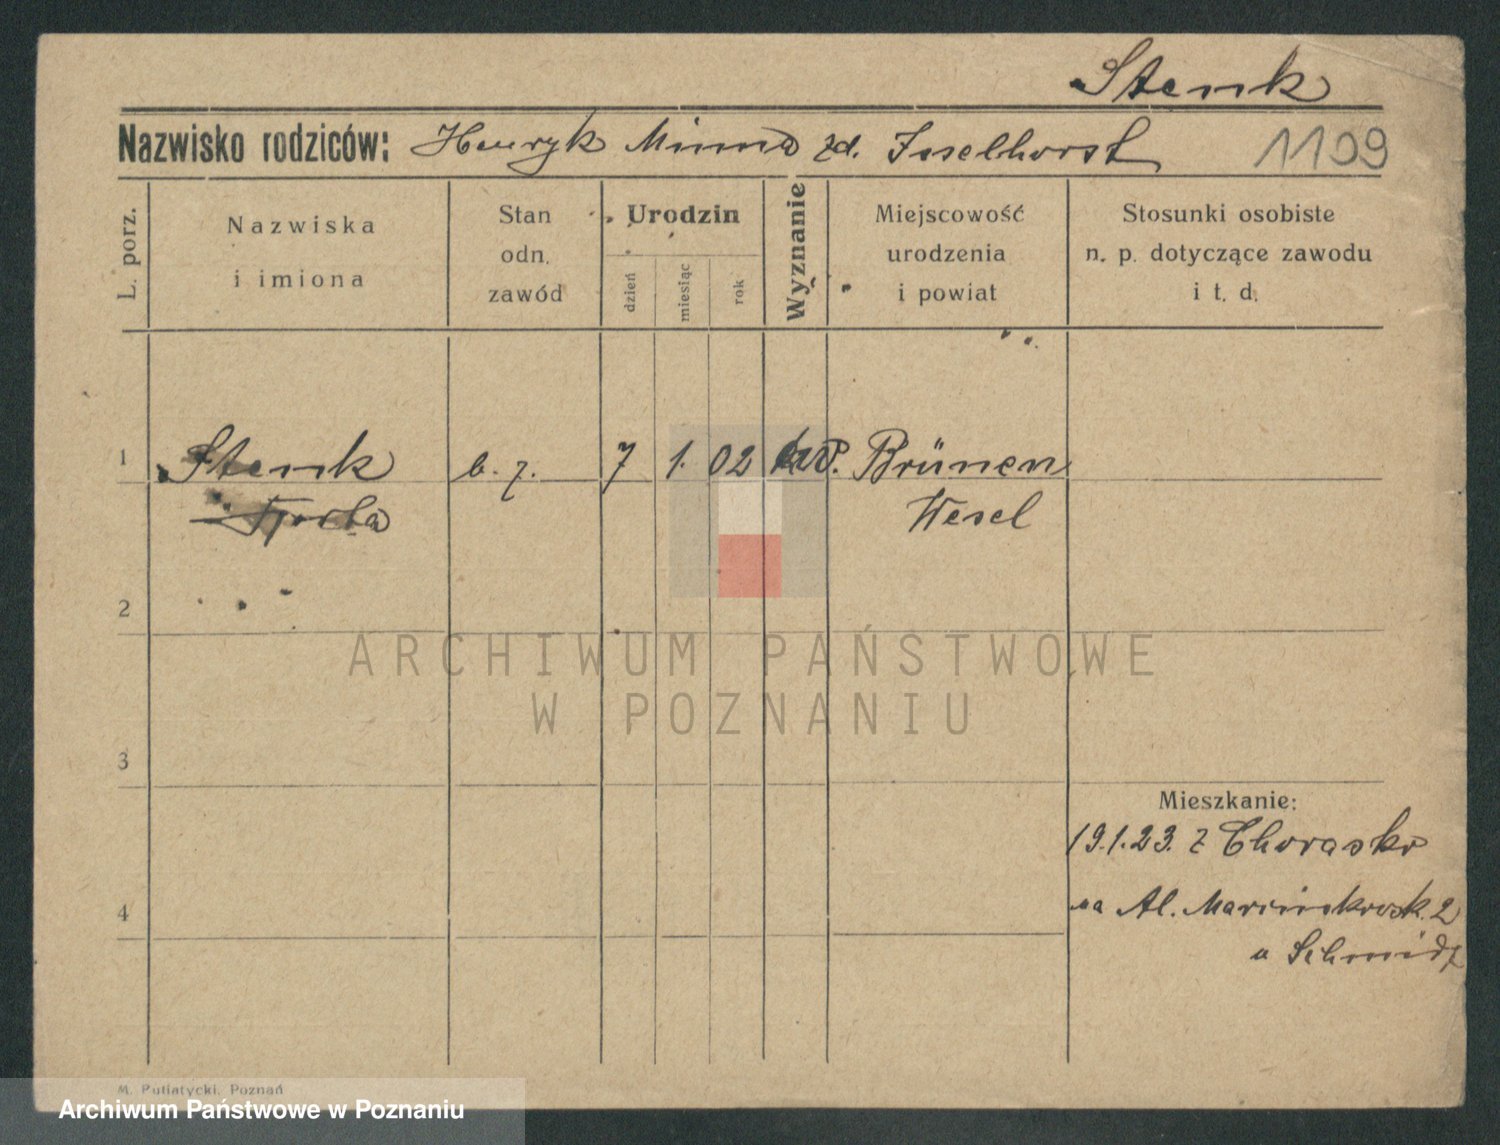 Stenk
Nazwisko rodziców: Henryk Minna zd. Isselhorst 1109
L. porz.
Nazwiska
i imiona
Stan
odn.
zawód
Urodzin
dzień
miesiąc
rok
Wyznanie
Miejscowość
urodzenia
i powiat
Stosunki osobiste
n. p. dotyczące zawodu
i t. d.
1 Stenk b. z. 7 1. 02 Brünen
Wesel
2
ARCHIWUM PAŃSTWOWE
W POZNANIU
3
Mieszkanie:
19.1.23. z
4
na Al. Marcinkowsk. 2
u Schmidt
M. Putiatycki, Poznań
Archiwum Państwowe w Poznaniu